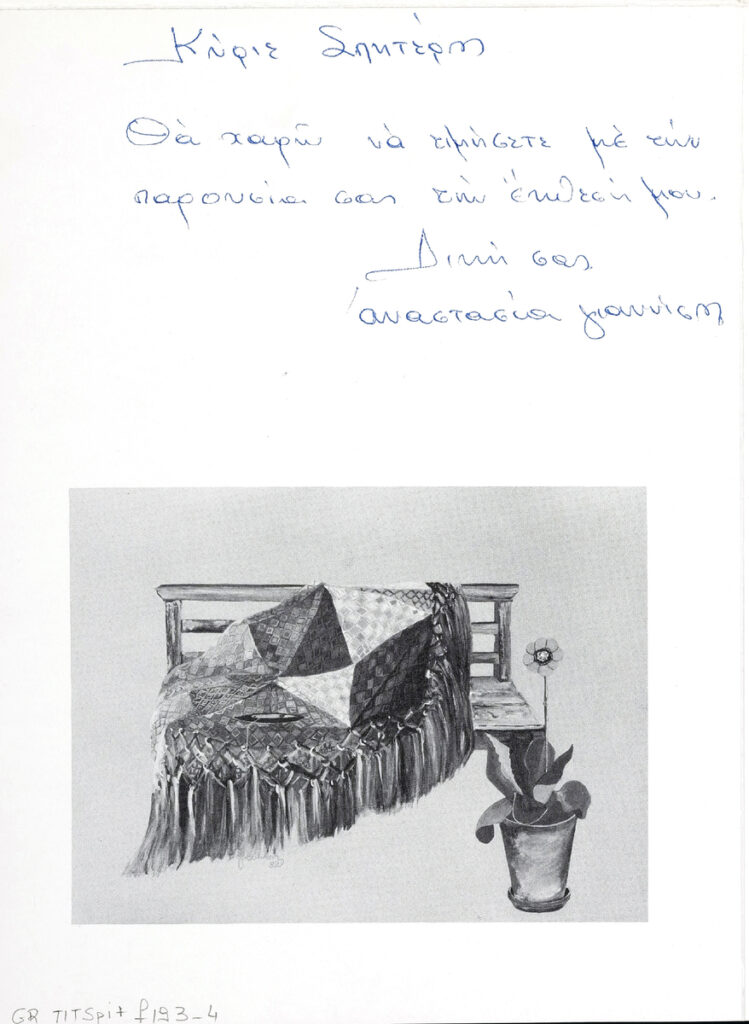 Κύριε Σπητέρη
Θὰ χαρῶ νὰ τιμήσετε μὲ τήν
παρουσία σας τὴν ἔκθεσή μου.
Δική σας
Ἀναστασία Γιαννίση
GR TITSpit f193-4